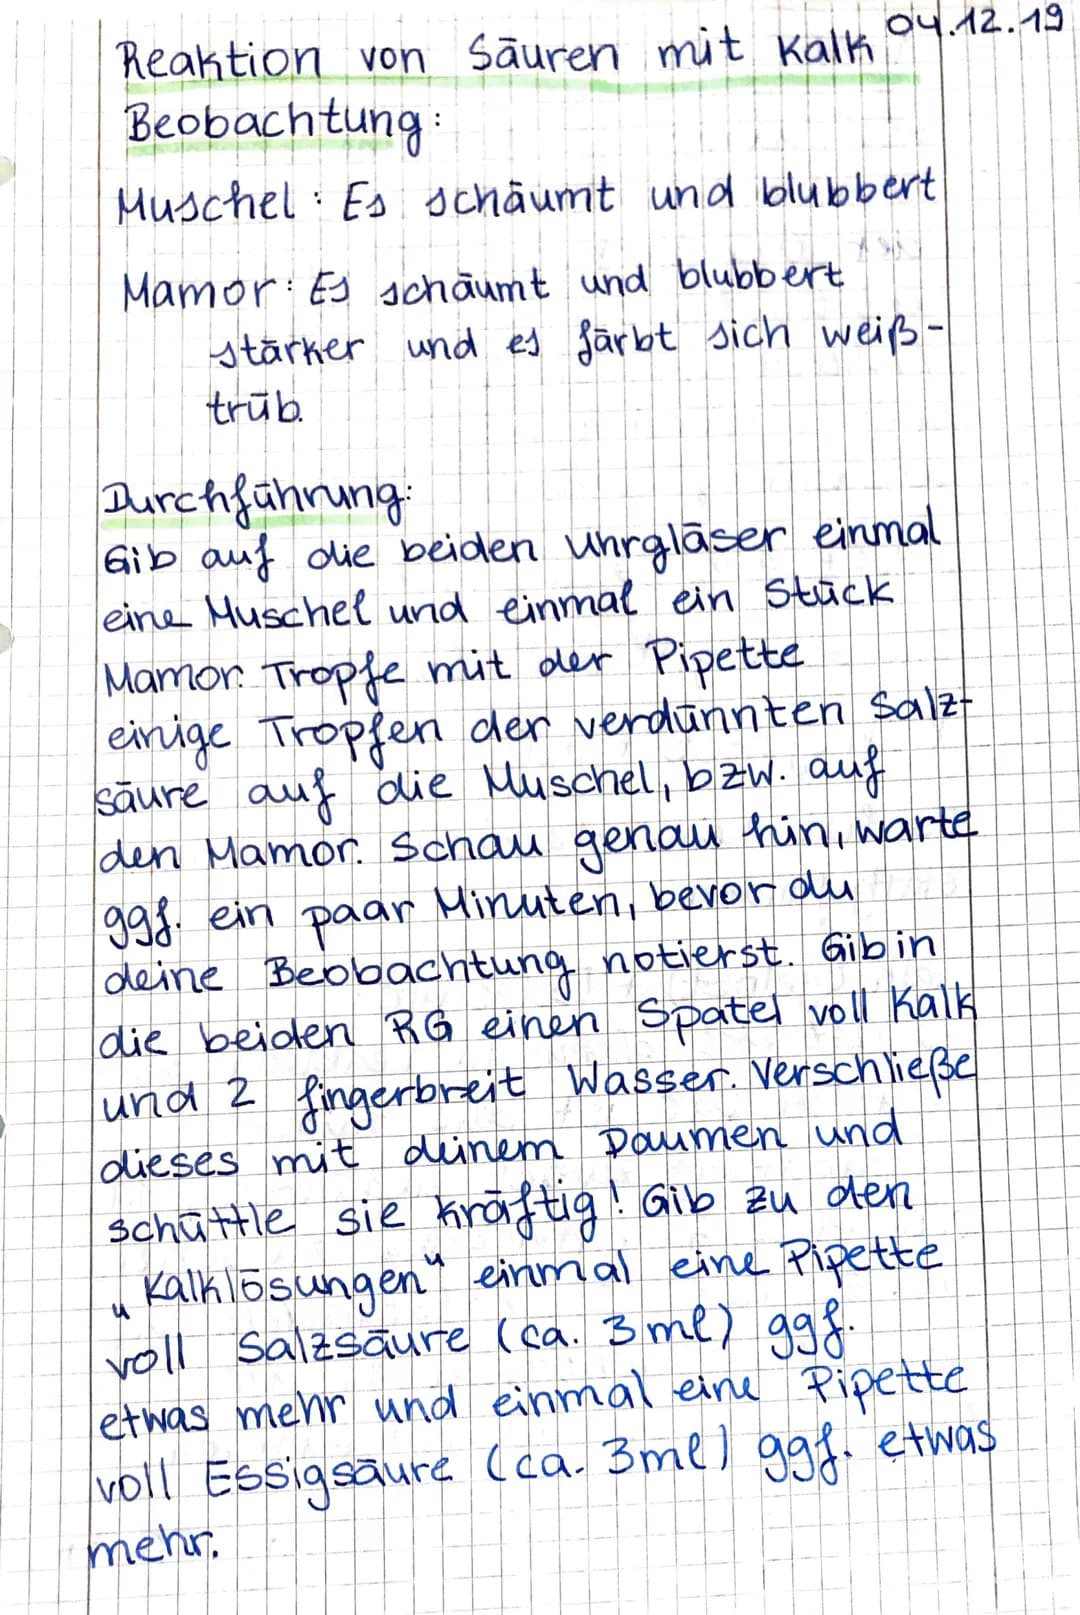 04.12.19
Reaktion von Säuren mit Kalk
Beobachtung:
Muschel: Es schäumt und blubbert
Mamor: Es schäumt und blubbert
stärker und es färbt sich weiß-
trüb.
Durchführung:
Gib auf die beiden Uhrgläser einmal
eine Muschel und einmal ein Stück
Mamor. Tropfe mit der Pipette
einige Tropfen der verdünnten Salz-
säure auf die Muschel, bzw. auf
den Mamor. Schau genau hin, warte
ggf. ein paar Minuten, bevor du
deine Beobachtung notierst. Gib in
die beiden RG einen Spatel voll Kalk
und 2 fingerbreit Wasser. Verschließe
dieses mit deinem Daumen und
schüttle sie kräftig! Gib zu den
„Kalklösungen" einmal eine Pipette
voll Salzsäure (ca. 3ml) ggf.
etwas mehr und einmal eine Pipette
voll Essigsäure (ca. 3ml) ggf. etwas
mehr.